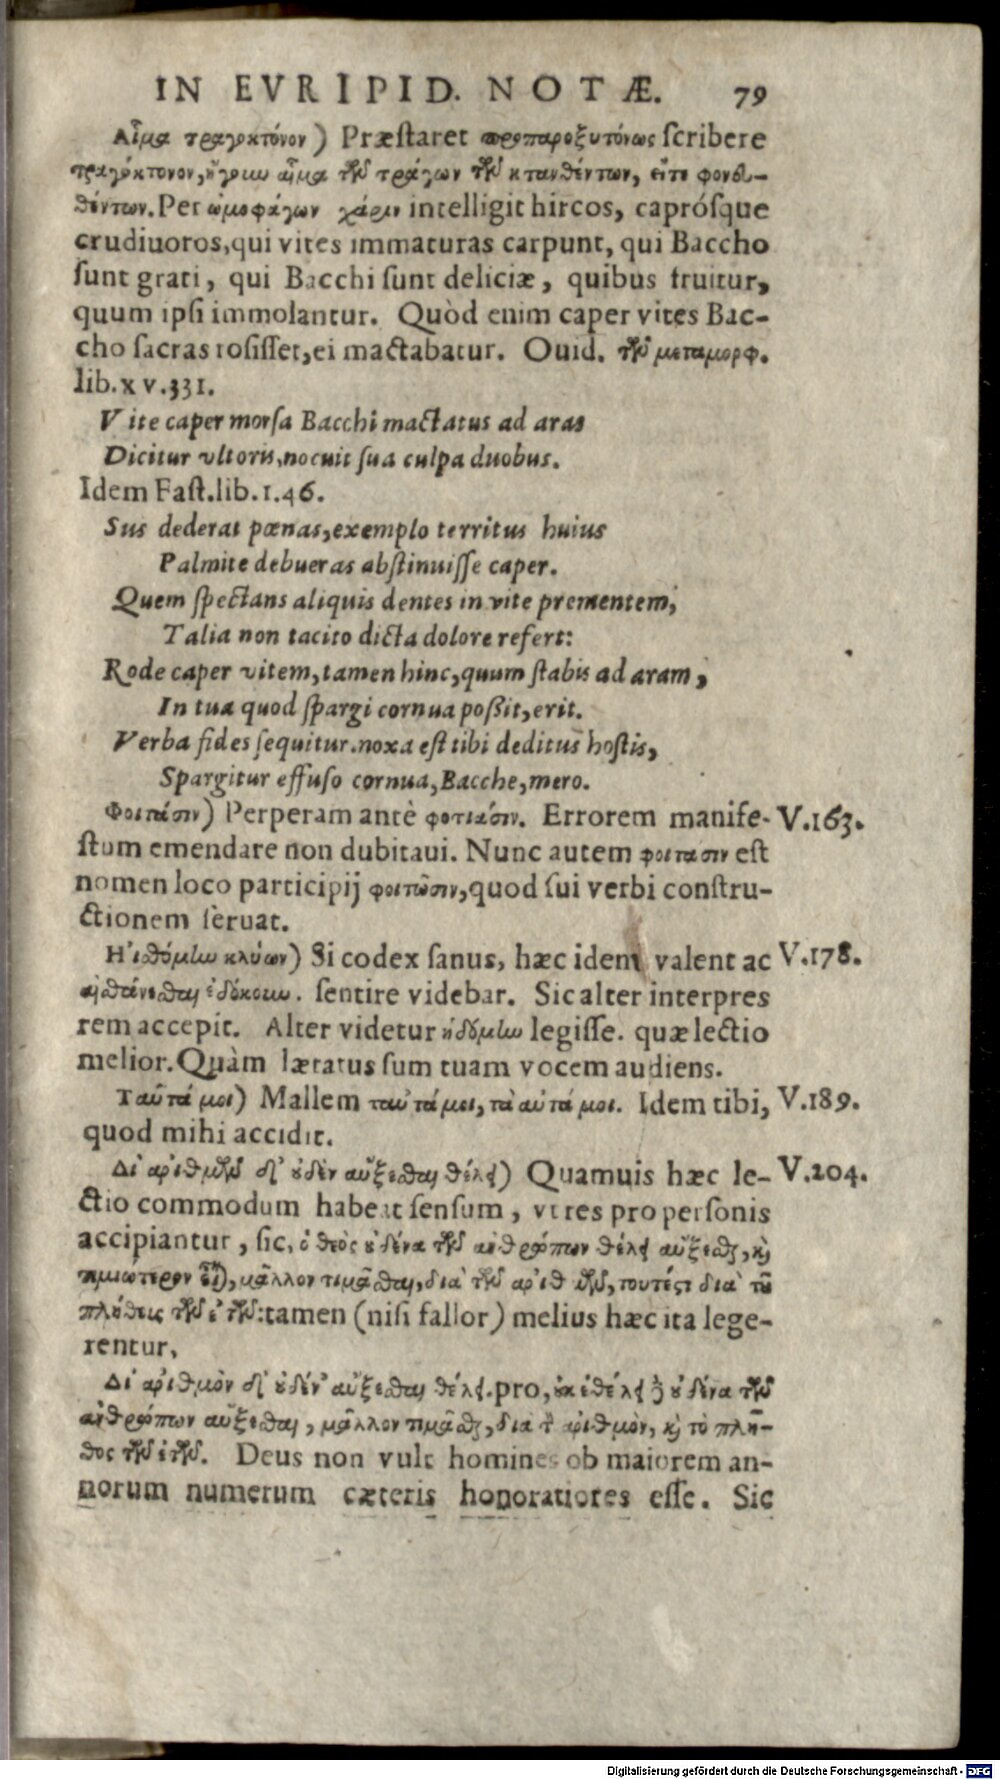 IN EVRIPID. NOTÆ. 79
Αἷμα τραγοκτόνον) Præstaret προπαροξυτόνως scribere
τραγόκτονον, ἤγουν αἷμα τῶν τράγων τῶν κτανθέντων, εἴτε φονευ-
θέντων. Per ὠμοφάγων χάριν intelligit hircos, caprósque
crudiuoros, qui vites immaturas carpunt, qui Baccho
sunt grati, qui Bacchi sunt deliciæ, quibus fruitur,
quum ipsi immolantur. Quòd enim caper vites Bac-
cho sacras rosisset, ei mactabatur. Ouid. τῶν μεταμορφ.
lib. xv. 331.
Vite caper morsa Bacchi mactatus ad aras
Dicitur vltoris, nocuit sua culpa duobus.
Idem Fast. lib. 1. 46.
Sus dederat pœnas, exemplo territus huius
Palmite debueras abstinuisse caper.
Quem spectans aliquis dentes in vite prementem,
Talia non tacito dicta dolore refert:
Rode caper vitem, tamen hinc, quum stabis ad aram,
In tua quod spargi cornua poßit, erit.
Verba fides sequitur. noxa est tibi deditus hostis,
Spargitur effuso cornua, Bacche, mero.
Φοιτάσιν) Perperam antè φοτιάσιν. Errorem manife- V. 163.
stum emendare non dubitaui. Nunc autem φοιτασιν est
nomen loco participij φοιτῶσιν, quod sui verbi constru-
ctionem seruat.
Ηἰσθόμην κλύων) Si codex sanus, hæc idem valent ac V. 178.
αἰσθάνεσθαι ἐδόκουν. sentire videbar. Sic alter interpres
rem accepit. Alter videtur ἡδόμην legisse. quæ lectio
melior. Quàm lætatus sum tuam vocem audiens.
Ταῦτά μοι) Mallem ταυτά μοι, τὰ αὐτά μοι. Idem tibi, V. 189.
quod mihi accidit.
Δι' ἀριθμῶν δ' οὐδὲν αὔξεσθαι θέλει) Quamuis hæc le- V. 204.
ctio commodum habeat sensum, vt res pro personis
accipiantur, sic, ὁ θεὸς οὐδένα τῶν ἀνθρώπων θέλει αὔξεσθαι, καὶ
τιμιώτερον εἶναι, μᾶλλον τιμᾶσθαι, διὰ τῶν ἀριθμῶν, τουτέστι διὰ τοῦ
πλήθεις τῶν ἐτῶν: tamen (nisi fallor) melius hæc ita lege-
rentur,
Δι' ἀριθμὸν δ' οὐδέν' αὔξεσθαι θέλει. pro, οὐκ ἐθέλει δὲ οὐδένα τῶν
ἀνθρώπων αὔξεσθαι, μᾶλλον τιμᾶσθαι, διὰ τὸν ἀριθμὸν, καὶ τὸ πλῆ-
θος τῶν ἐτῶν. Deus non vult homines ob maiorem an-
norum numerum cæteris honoratiores esse. Sic
Digitalisierung gefördert durch die Deutsche Forschungsgemeinschaft - DFG